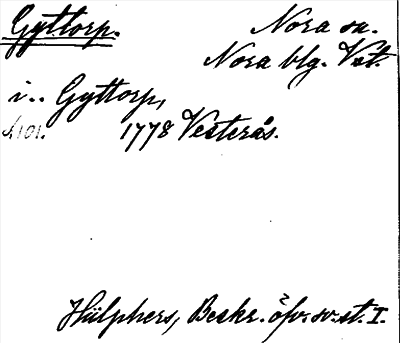 Gyttorp.
Nora sn.
Nora blg. Vstm.
i.. Gyttorp,
1778 Vesterås.
Hülphers, Beskr. öfv. sv. st. I.